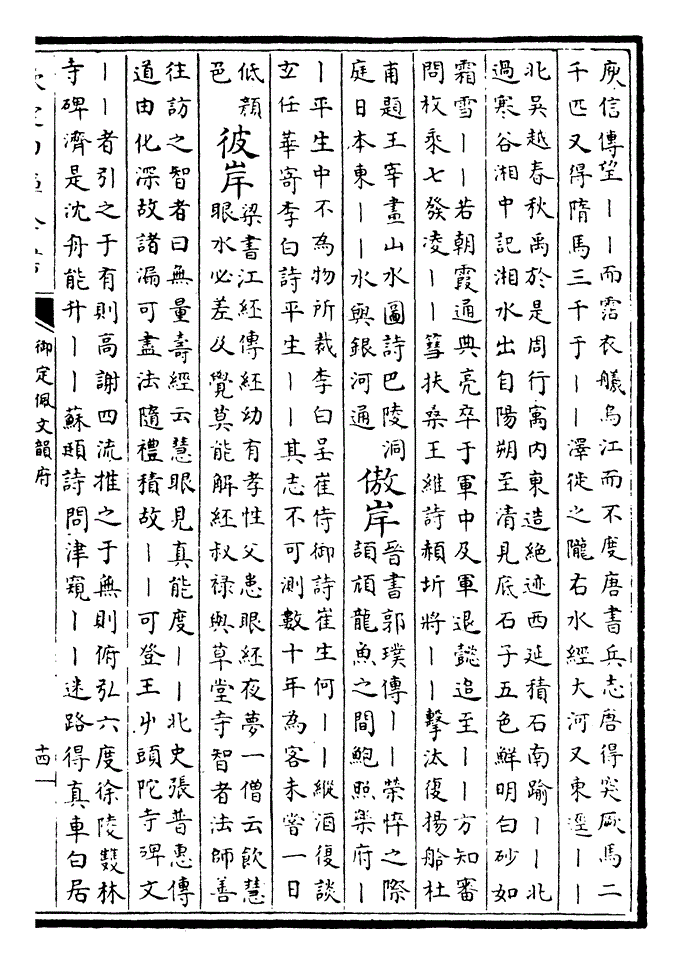 庾信傳望丨丨而霑衣艤烏江而不度唐書兵志唐得突厥馬二
千匹又得隋馬三千于丨丨澤徙之隴右水經大河又東逕丨丨
北吳越春秋禹於是周行寓內東造絶迹西延積石南踰丨丨北
過寒谷湘中記湘水出自陽朔至清見底石子五色鮮明白砂如
霜雪丨丨若朝霞通典亮卒于軍中及軍退懿追至丨丨方知審
問枚乘七發凌丨丨篲扶桑王維詩赬圻將丨丨擊汰復揚舲杜
甫題王宰畫山水圖詩巴陵洞
庭日本東丨丨水與銀河通
傲岸
晉書郭璞傳丨丨榮悴之際
頡頏龍魚之間鮑照樂府丨
丨平生中不為物所裁李白呈崔侍御詩崔生何丨丨縱酒復談
玄任華寄李白詩平生丨丨其志不可測數十年為客未嘗一日
低顔
色
彼岸
梁書江紑傳紑幼有孝性父患眼紑夜夢一僧云飲慧
眼水必差及覺莫能解紑叔祿與草堂寺智者法師善
往訪之智者曰無量壽經云慧眼見真能度丨丨北史張普惠傳
道由化深故諸漏可盡法隨禮積故丨丨可登王屮頭陀寺碑文
丨丨者引之于有則高謝四流推之于無則俯弘六度徐陵雙林
寺碑濟是沈舟能升丨丨蘇頲詩問津窺丨丨迷路得真車白居
御定佩文韻府
十四